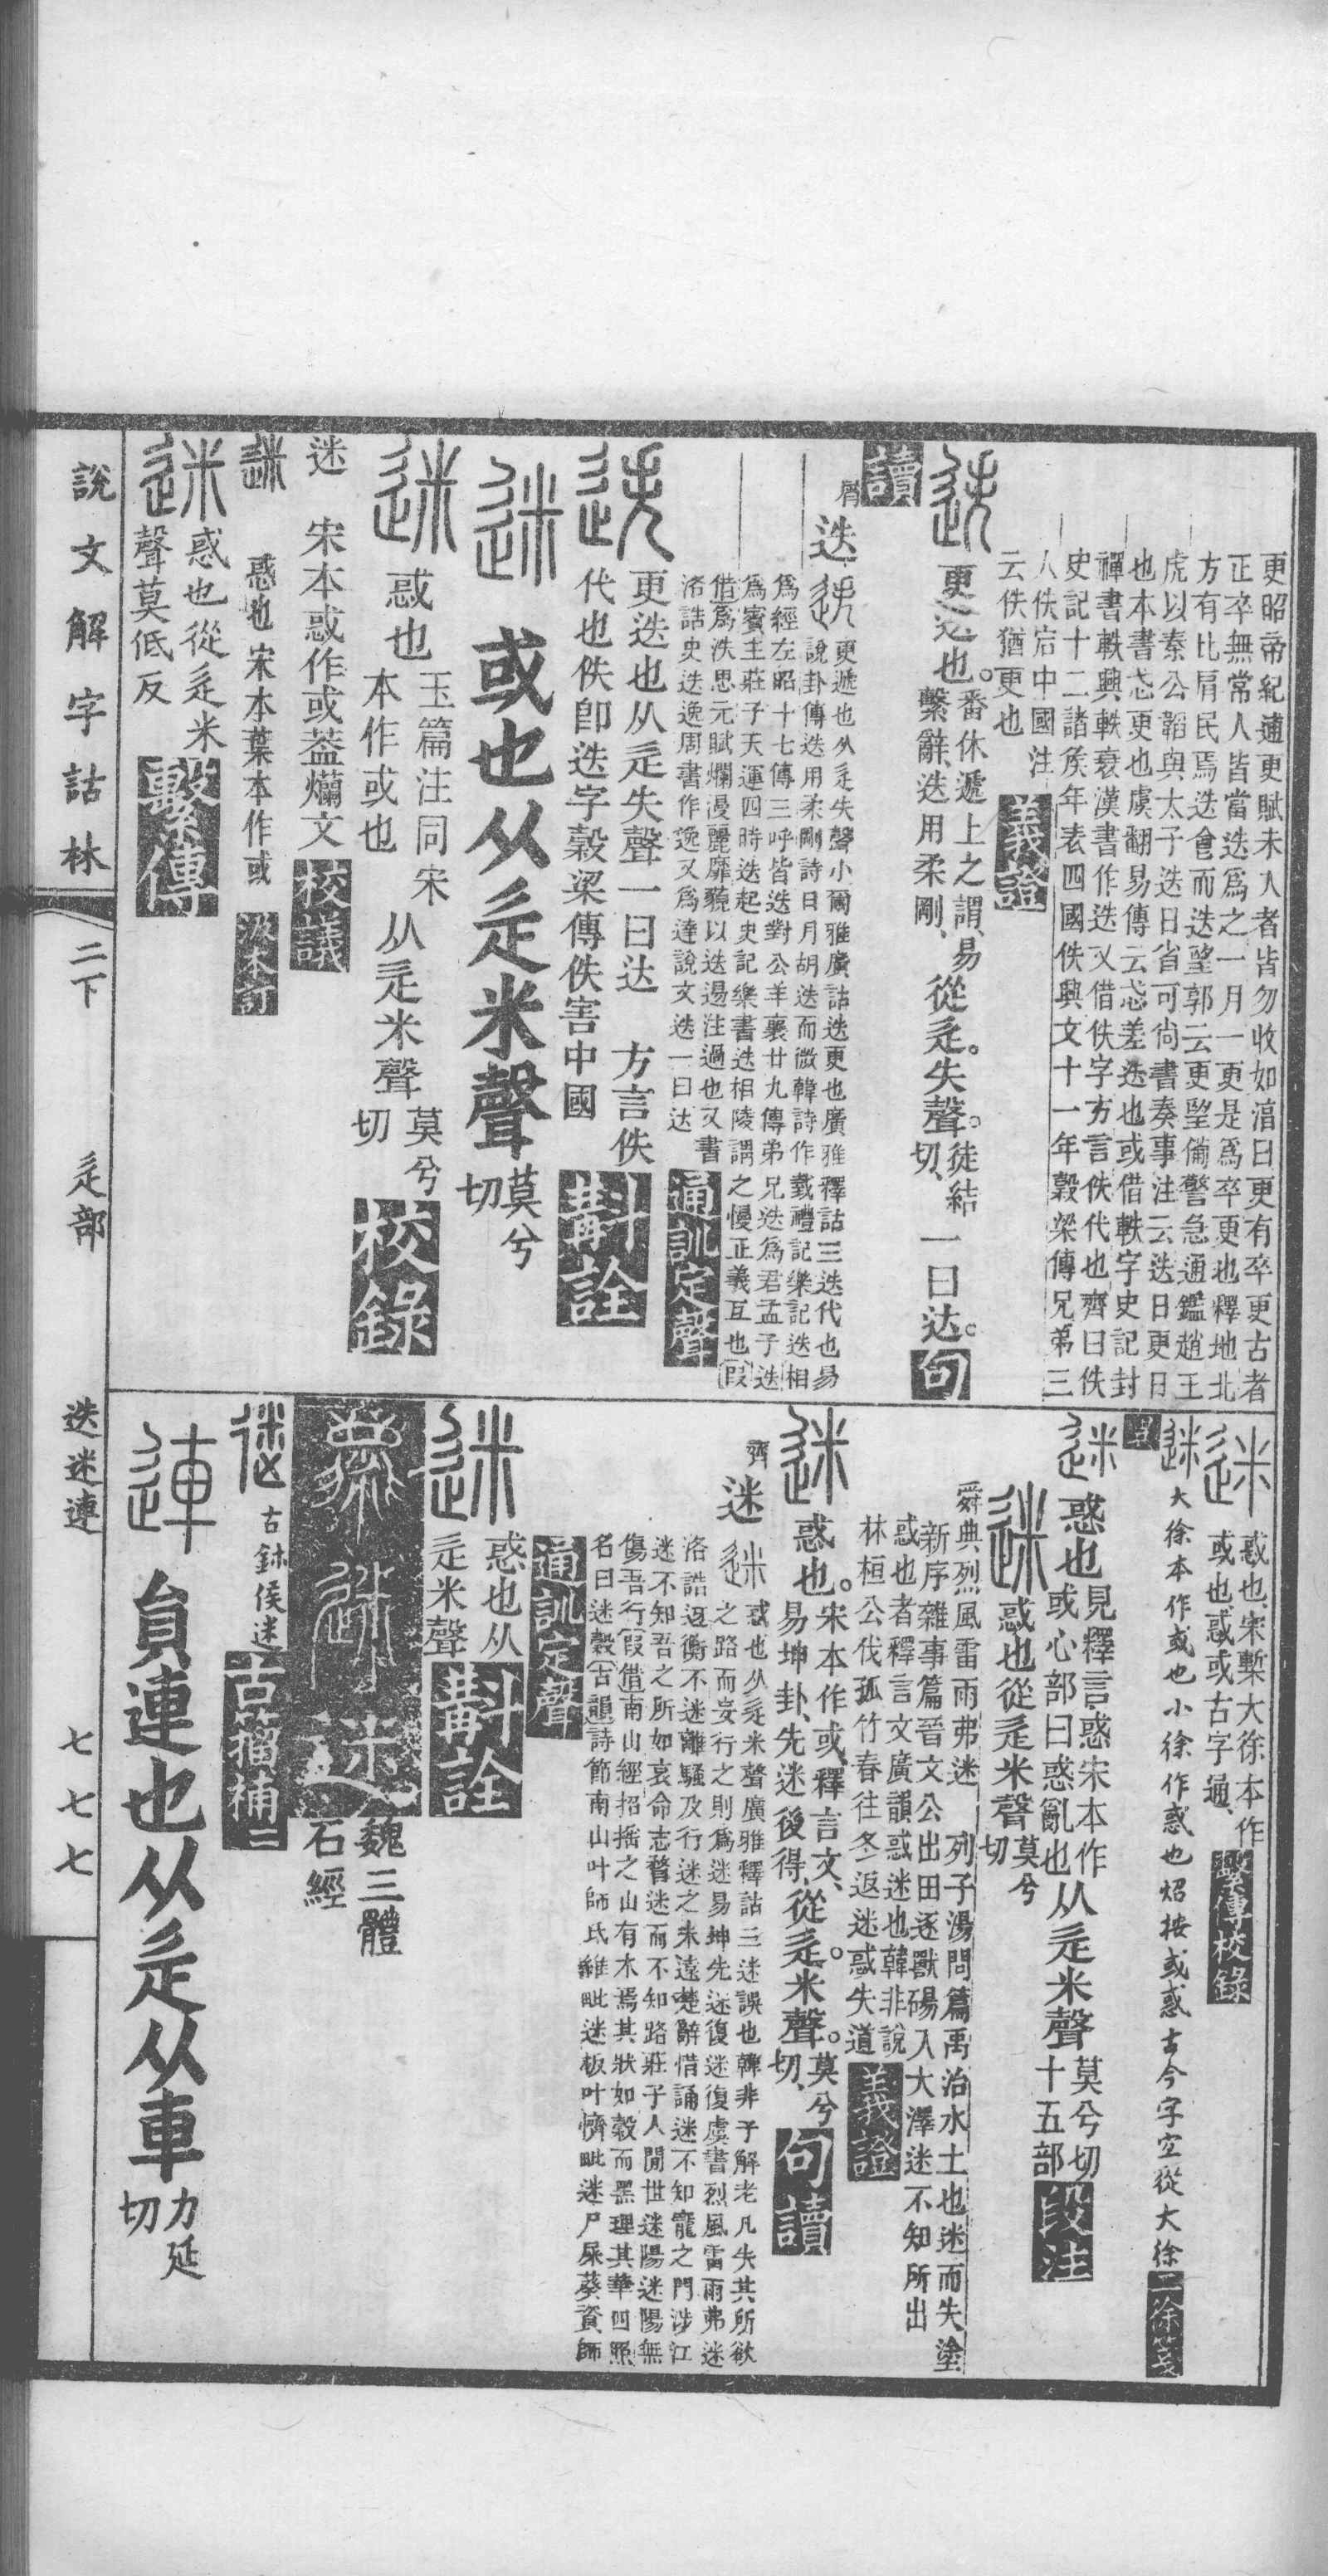 更昭帝紀逋更賦未入者皆勿收如淳曰更有卒更古者
正卒無常人皆當迭爲之一月一更是爲卒更也釋地北
方有比肩民焉迭食而迭望郭云更望備警急通鑑趙王
虎以秦公韜與太子迭日省可尙書奏事注云迭日更日
也本書忒更也虞翻易傳云忒差迭也或借軼字史記封
禪書軼興軼衰漢書作迭又借佚字方言佚代也齊曰佚
史記十二諸矦年表四國佚興文十一年穀梁傳兄弟三
人佚宕中國注
云佚猶更也
義證
更迭也。
番休遞上之謂、易
繫辭、迭用柔剛、
從辵。失聲。
徒結
切、
一曰达。
句
讀
屑
迭
更遞也从辵失聲小爾雅廣詁迭更也廣雅釋詁三迭代也易
說卦傳迭用柔剛詩日月胡迭而微韓詩作臷禮記樂記迭相
爲經左昭十七傳三呼皆迭對公羊襄廿九傳弟兄迭爲君孟子迭
爲賓主莊子天運四時迭起史記樂書迭相陵謂之慢正義互也假
借爲泆思元賦爛漫麗靡藐以迭逿注過也又書
洛誥史迭逸周書作逸又爲達說文迭一曰达
通訓定聲
更迭也从辵失聲一曰达 方言佚
代也佚卽迭字穀梁傳佚害中國
斠詮
或也从辵米聲
莫兮
切
惑也
玉篇注同宋
本作或也
从辵米聲
莫兮
切
校錄
迷 宋本惑作或葢爛文
校議
惑也宋本葉本作或
汲本訂
惑也從辵米
聲莫低反
繫傳
惑也、宋槧大徐本、作
或也惑或古字通、
繫傳校錄
大徐本作或也小徐作惑也炤按或惑古今字宜從大徐
二徐箋
惑也
見釋言惑宋本作
或心部曰惑亂也
从辵米聲
莫兮切
十五部
段注
惑也從辵米聲
莫兮
切
舜典烈風雷雨弗迷 列子湯問篇禹治水土也迷而失塗
新序雜事篇晉文公出田逐獸碭入大澤迷不知所出
惑也者釋言文廣韻惑迷也韓非說
林桓公伐孤竹春往冬返迷惑失道
義證
惑也。
宋本作或、釋言文、
易坤卦、先迷後得、
從辵。米聲。
莫兮
切、
句讀
齊
迷
惑也从辵米聲廣雅釋詁三迷誤也韓非子解老凡失其所欲
之路而妄行之則爲迷易坤先迷復迷復虞書烈風雷雨弗迷
洛誥迓衡不迷離騷及行迷之未遠楚辭惜誦迷不知寵之門涉江
迷不知吾之所如哀命志瞀迷而不知路莊子人閒世迷陽迷陽無
傷吾行假借南山經招搖之山有木焉其狀如穀而黑理其華四照
名曰迷穀古韻詩節南山叶師氐維毗迷板叶懠毗迷尸屎葵資師
通訓定聲
惑也从
辵米聲
斠詮
迷
魏三體
石經
古鉢侯迷
古籀補二
貟連也从辵从車
力延
切
說文解字詁林
二下
辵部
迭迷連
七七七